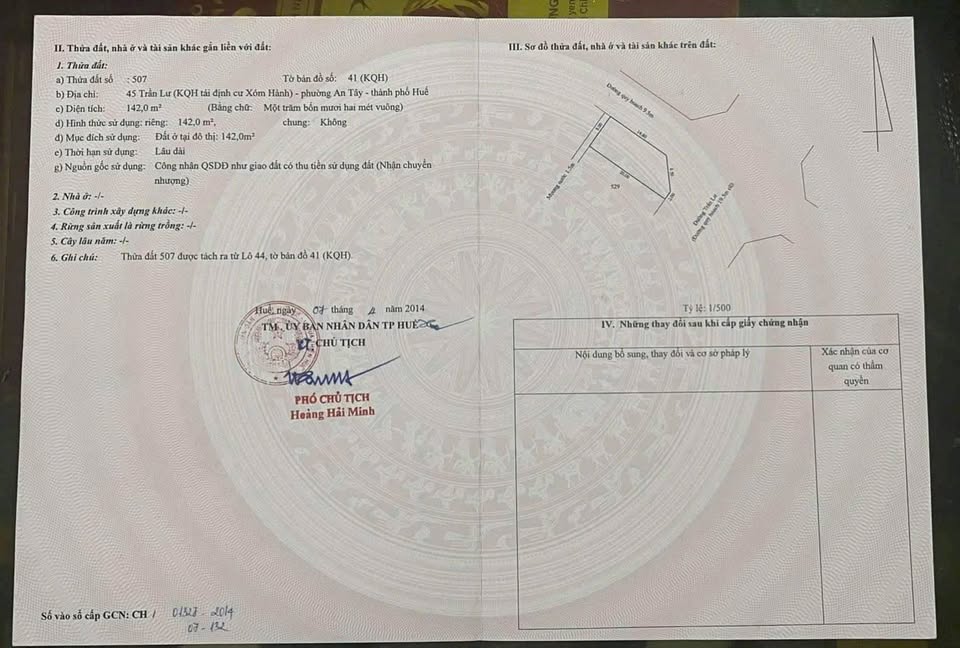 II. Thửa đất, nhà ở và tài sản khác gắn liền với đất:
1. Thửa đất:
a) Thửa đất số : 507 Tờ bản đồ số: 41 (KQH)
b) Địa chỉ: 45 Trần Lư (KQH tái định cư Xóm Hành) - phường An Tây - thành phố Huế
c) Diện tích: 142,0 m² (Bằng chữ: Một trăm bốn mươi hai mét vuông)
d) Hình thức sử dụng: riêng: 142,0 m², chung: Không
đ) Mục đích sử dụng: Đất ở tại đô thị: 142,0m²
e) Thời hạn sử dụng: Lâu dài
g) Nguồn gốc sử dụng: Công nhân QSDĐ như giao đất có thu tiền sử dụng đất (Nhận chuyển
nhượng)
2. Nhà ở: -/-
3. Công trình xây dựng khác: -/-
4. Rừng sản xuất là rừng trồng: -/-
5. Cây lâu năm: -/-
6. Ghi chú: Thửa đất 507 được tách ra từ Lô 44, tờ bản đồ 41 (KQH).
Huế, ngày 07 tháng năm 2014
TM. ỦY BAN NHÂN DÂN TP HUẾ
KT. CHỦ TỊCH
PHÓ CHỦ TỊCH
Hoàng Hải Minh
Số vào sổ cấp GCN: CH /
07 - 132
III. Sơ đồ thửa đất, nhà ở và tài sản khác trên đất:
Đường quy hoạch 9.5m
Mương nước 1.5m
529
Đường Trần Lư
(Đường quy hoạch 19.5m cũ)
Tỷ lệ: 1/500
IV. Những thay đổi sau khi cấp giấy chứng nhận
Nội dung bổ sung, thay đổi và cơ sở pháp lý
Xác nhận của cơ
quan có thẩm
quyền